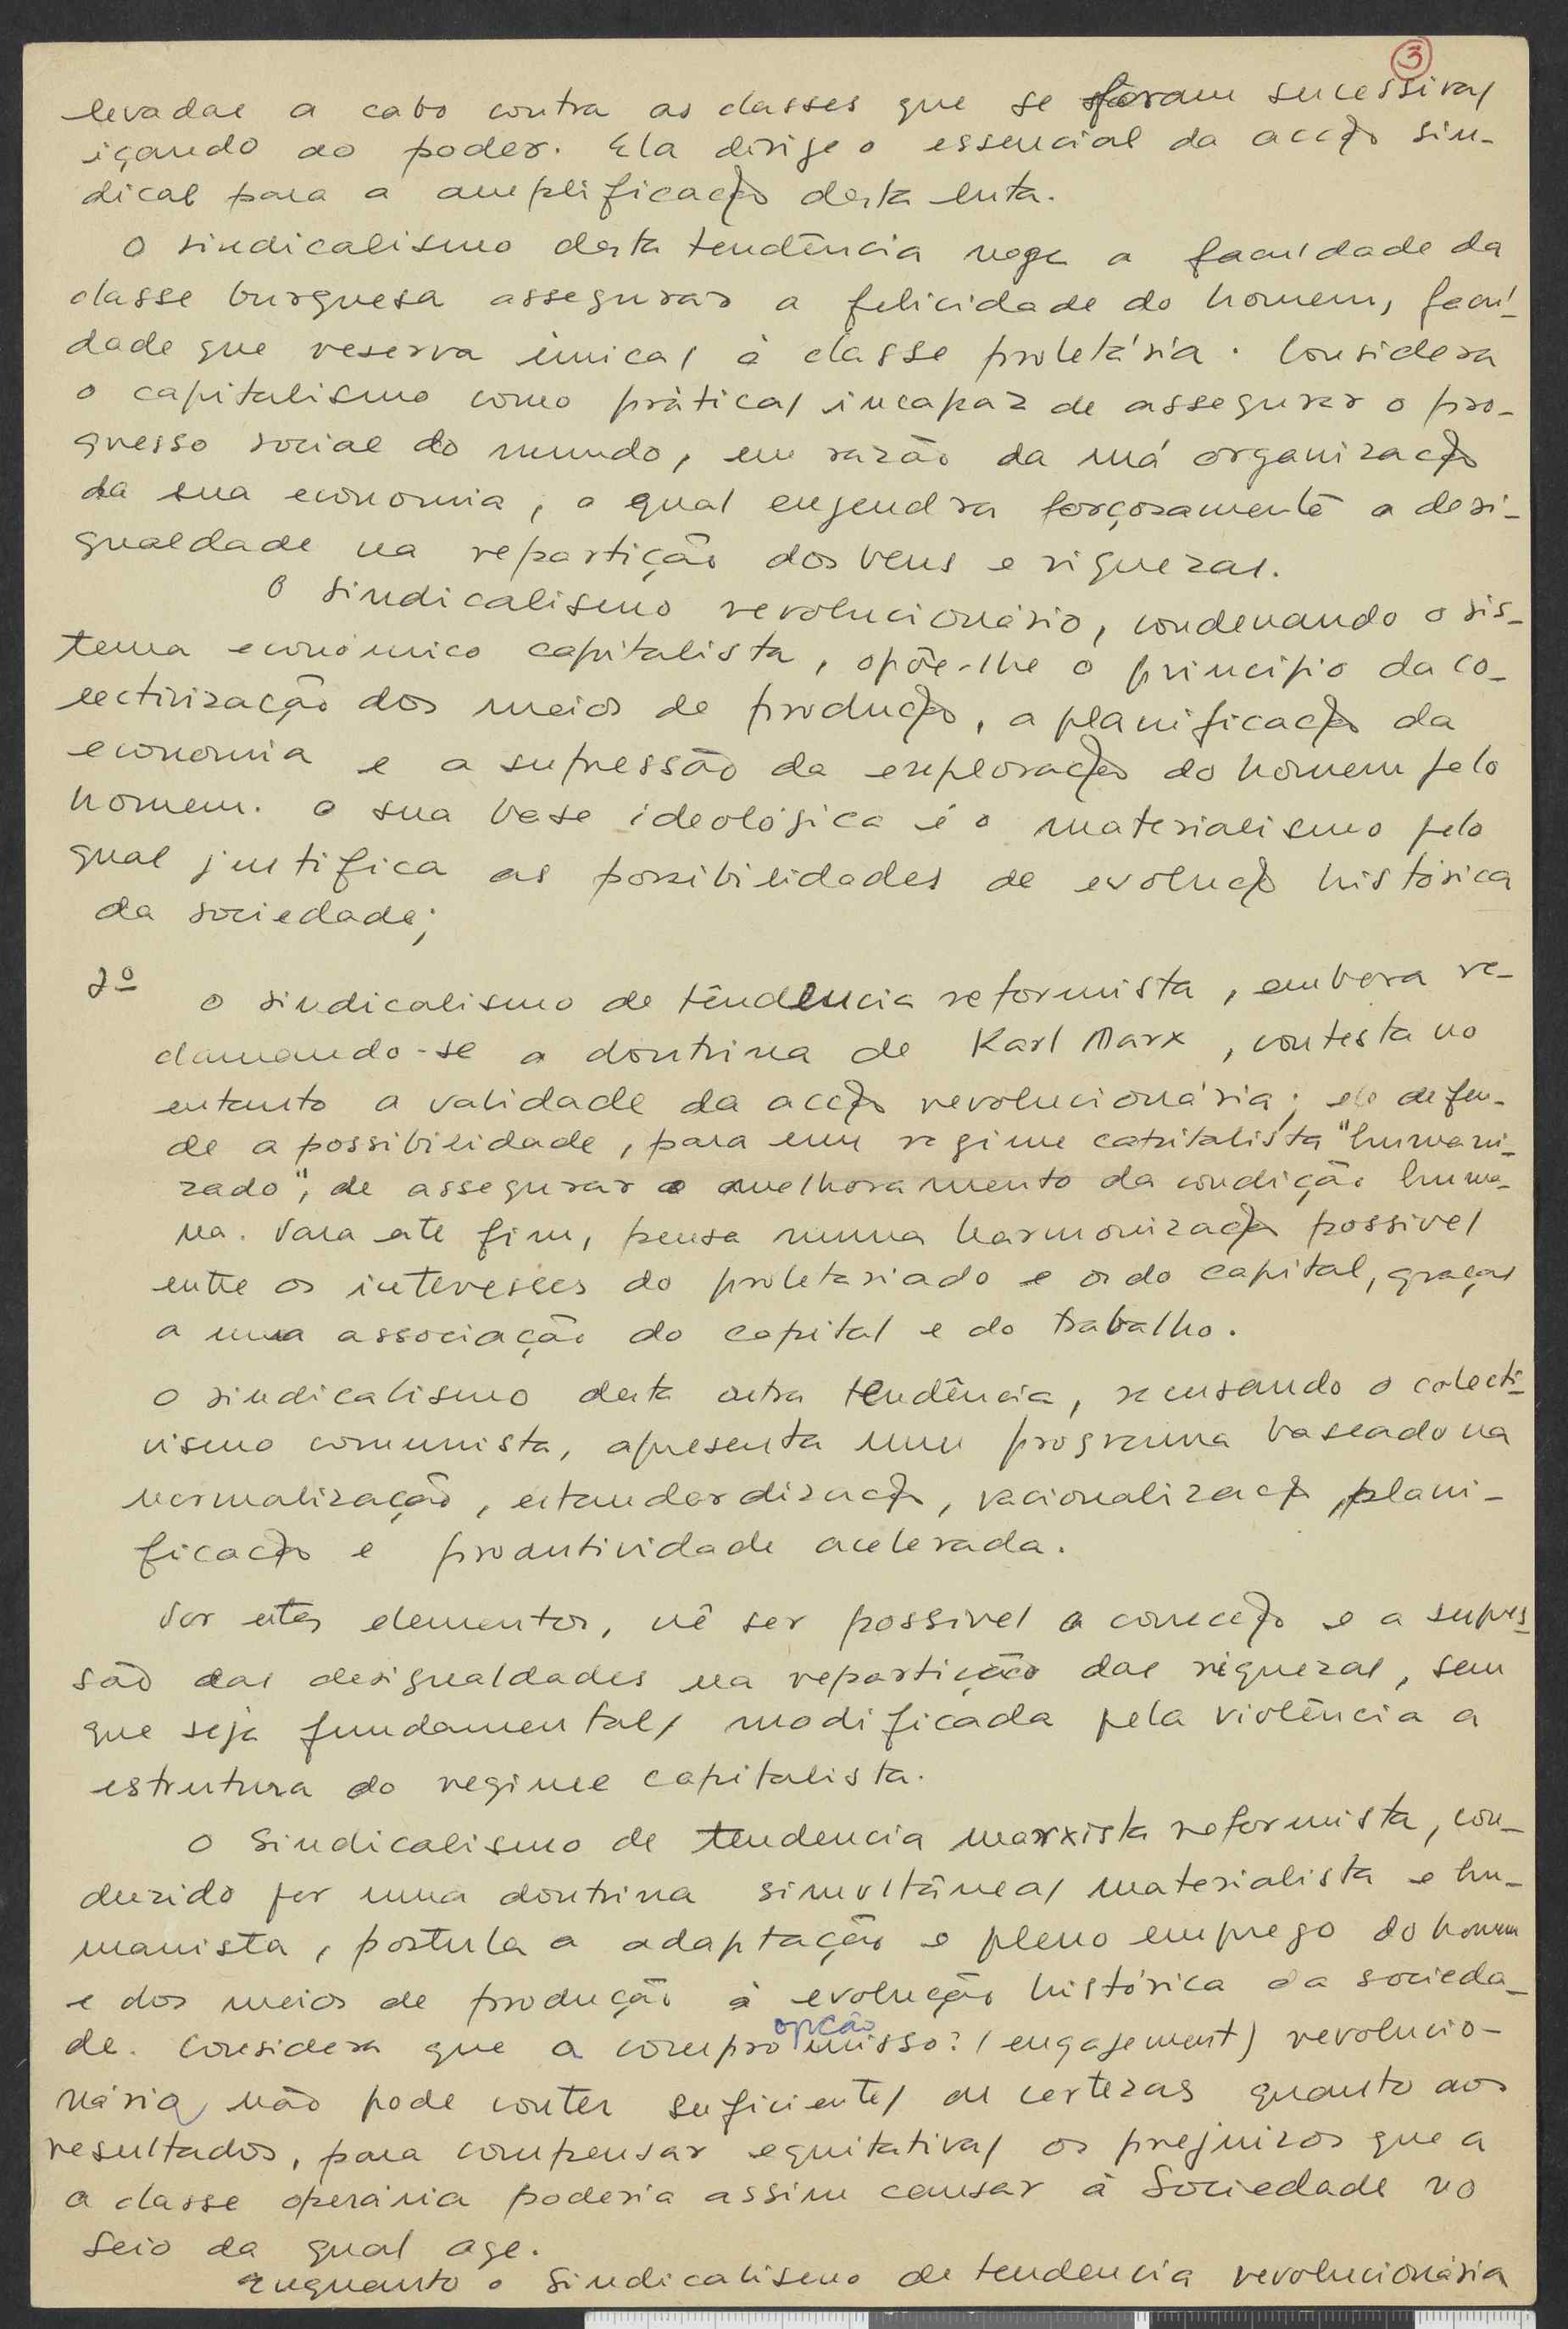 3
levadas a cabo contra as classes que se foram sucessiva/
içando ao poder. Ela dirige o essencial da acção sin-
dical para a amplificação desta luta.
O sindicalismo desta tendência nega a faculdade da
classe burguesa assegurar a felicidade do homem, facul-
dade que reserva única/ à classe proletária. Considera
o capitalismo como prática/ incapaz de assegurar o pro-
gresso social do mundo, em razão da má organização
da sua economia, a qual engendra forçosamente a desi-
gualdade na repartição dos bens e riquezas.
O sindicalismo revolucionário, condenando o sis-
tema económico capitalista, opõe-lhe o princípio da co-
lectivização dos meios de produção, a planificação da
economia e a supressão da exploração do homem pelo
homem. A sua base ideológica é o materialismo pelo
qual justifica as possibilidades de evolução histórica
da sociedade;
2º O sindicalismo de tendencia reformista, embora re-
clamando-se a doutrina de Karl Marx, contesta no
entanto a validade da acção revolucionária; ele defen-
de a possibilidade, para um regime capitalista "humani-
zado", de assegurar o melhoramento da condição huma-
na. Para este fim, pensa numa harmonização possivel
entre os interesses do proletariado e os do capital, graças
a uma associação do capital e do trabalho.
O sindicalismo desta outra tendência, recusando o colecti-
vismo comunista, apresenta um programa baseado na
normalização, estandardização, racionalização, plani-
ficação e produtividade acelerada.
Por estes elementos, vê ser possivel a correcção e a supres-
são das desigualdades na repartição das riquezas, sem
que seja fundamental/ modificada pela violência a
estrutura do regime capitalista.
O Sindicalismo de tendencia marxista reformista, con-
duzido por uma doutrina simultânea/ materialista e hu-
manista, postula a adaptação e pleno emprego do homem
e dos meios de produção à evolução histórica da socieda-
opção
de. Considera que a compromisso? (engagement) revolucio-
nária não pode conter suficiente/ de certezas quanto aos
resultados, para compensar equitativa/ os prejuizos que a
a classe operária poderia assim causar à Sociedade no
seio da qual age.
Enquanto o Sindicalismo de tendencia revolucionária